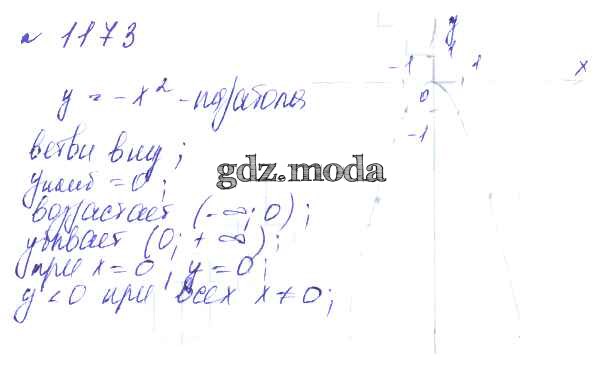 № 1173
y = -x² - парабола
ветви вниз;
y наиб = 0;
возрастает (-∞; 0);
убывает (0; +∞);
при x = 0, y = 0;
y < 0 при всех x ≠ 0;
y
1
-1
1
x
0
-1
gdz.moda